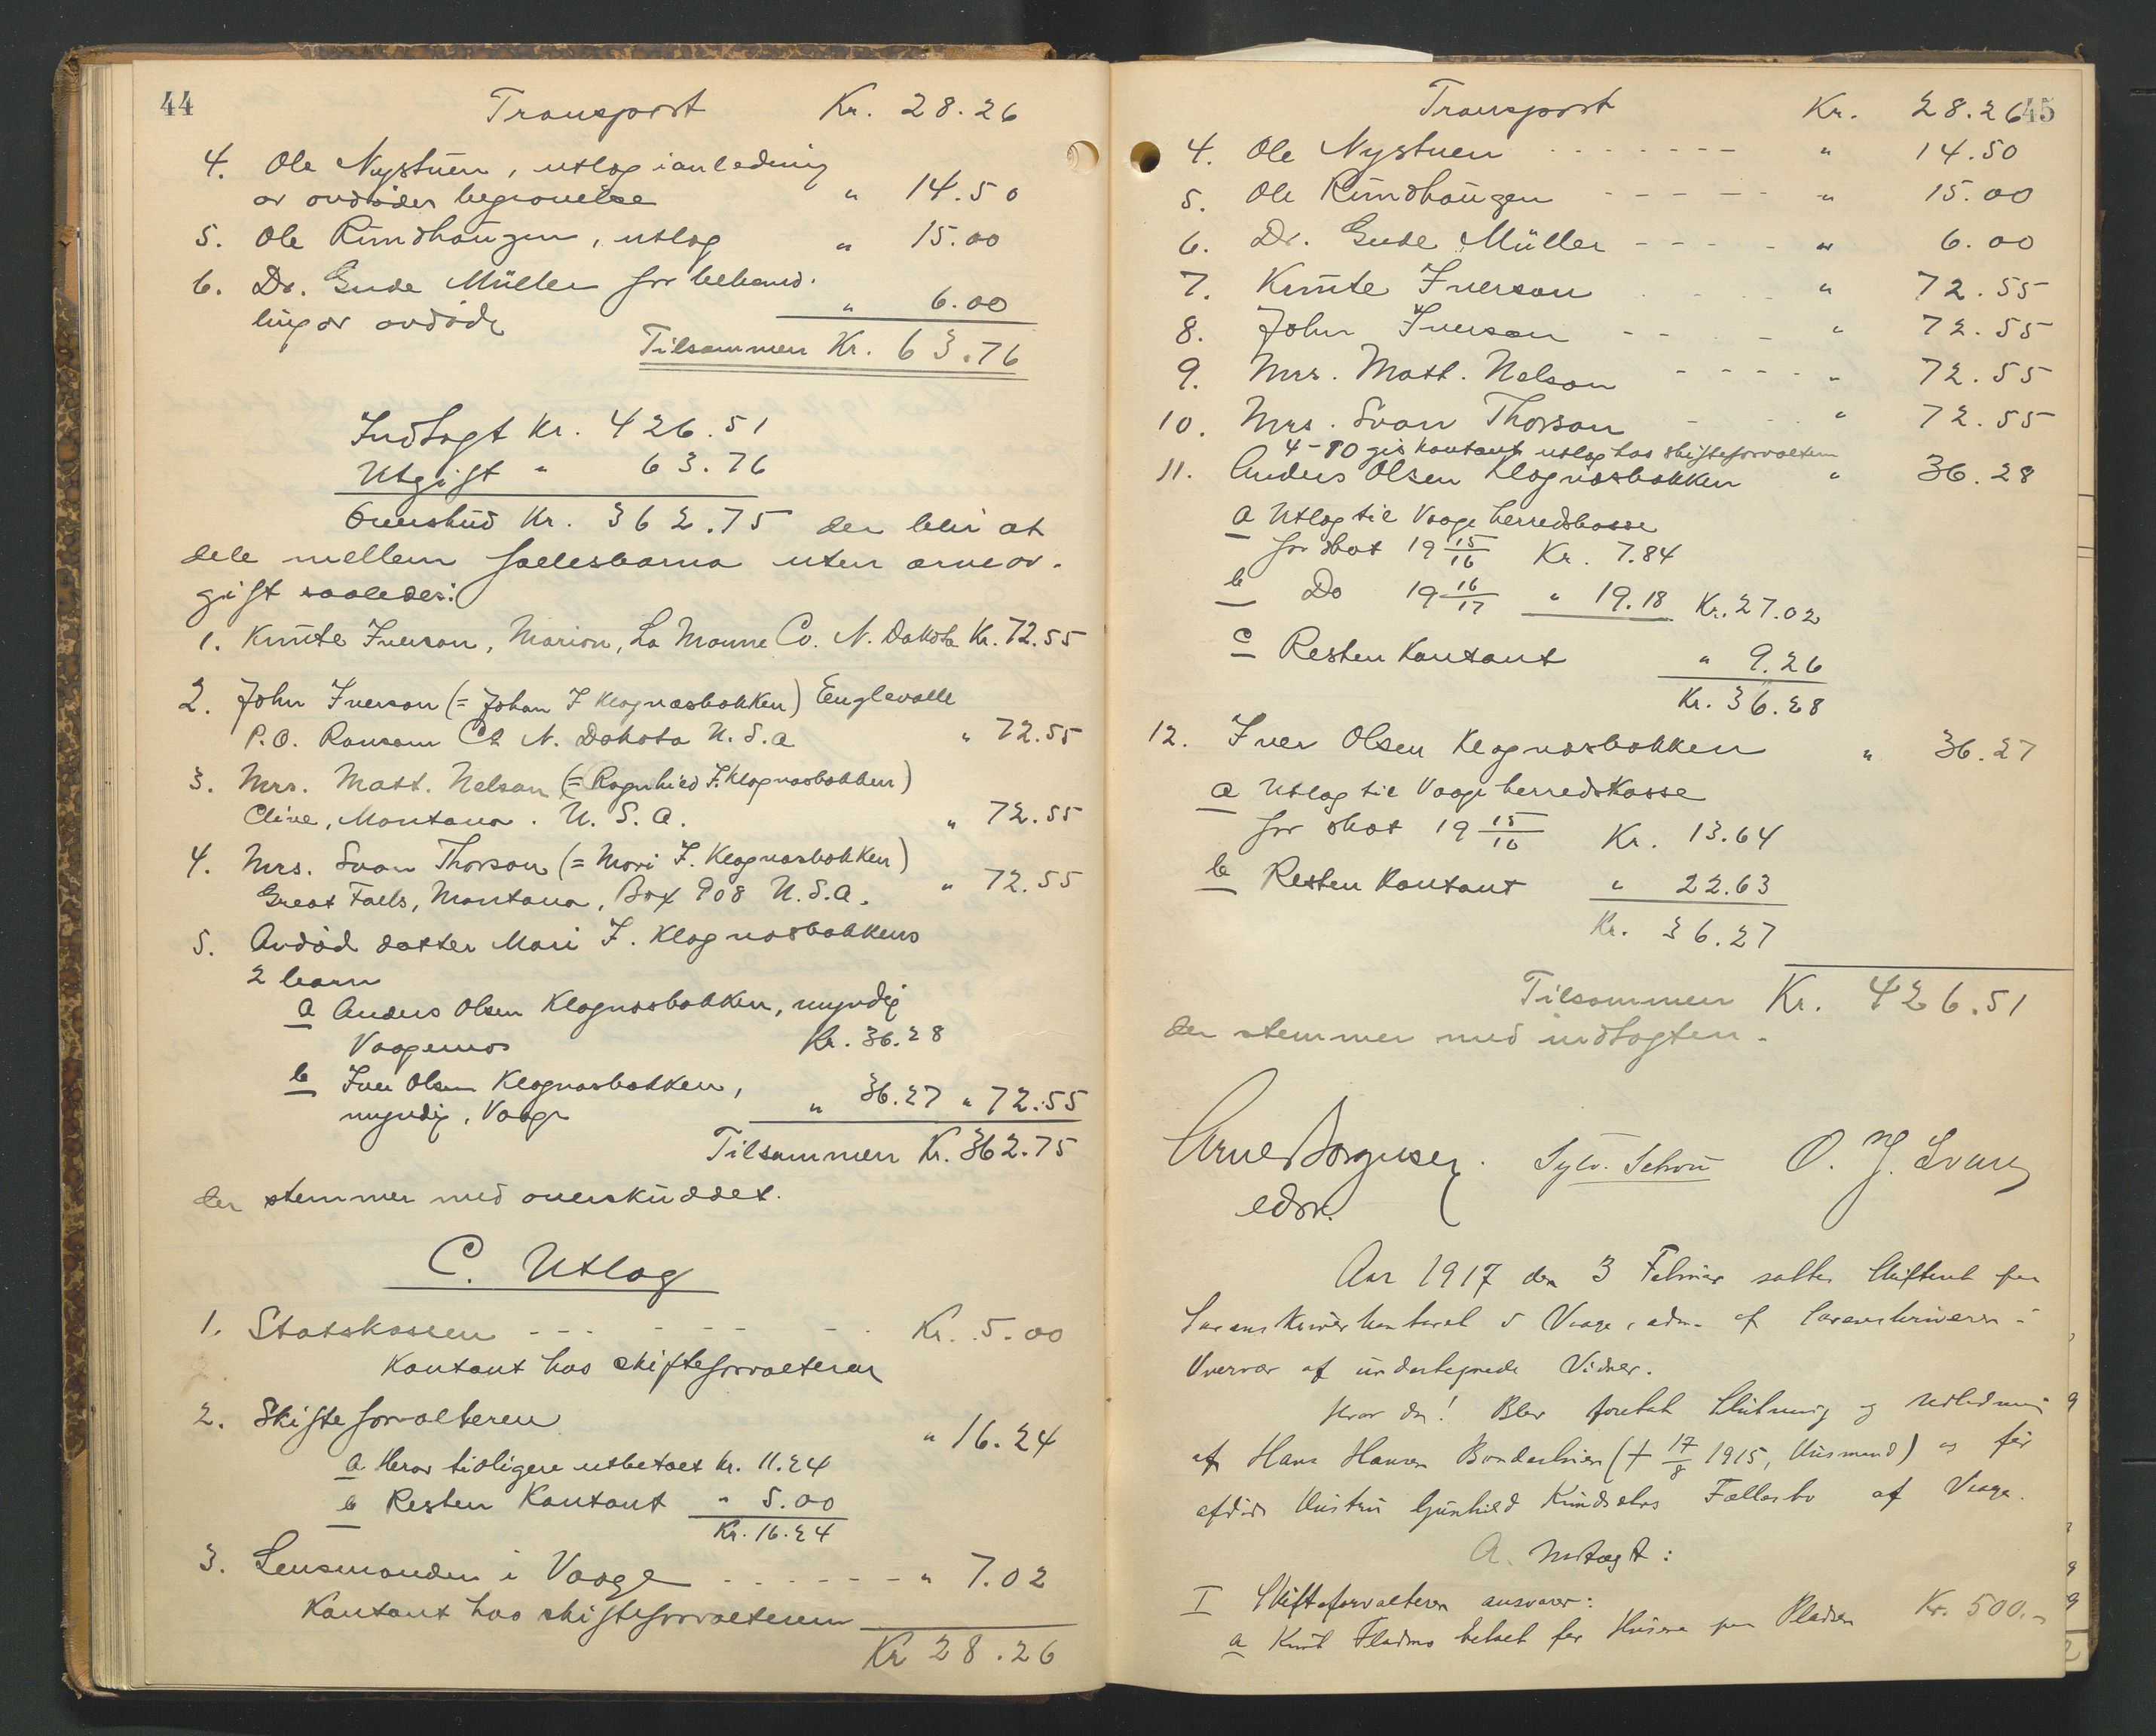 44
Transport Kr. 28.26
4. Ole Nystuen, utlæg i anledning
av avdødes begravelse " 14.50
5. Ole Rundhaugen, utlæg " 15.00
6. Dr. Gude Müller for behand-
ling av avdøde " 6.00
Tilsammen Kr. 63.76
Indtægt Kr. 426.51
Utgift " 63.76
Overskud Kr. 362.75 der blir at
dele mellem fællesbarna uten arveav-
gift saaledes:
1. Knute Iverson, Marion, La Moure Co. N. Dakota Kr. 72.55
2. John Iverson (= Johan I. Klognæsbakken) Englevalle
P.O. Ransom Ct N. Dakota U.S.A " 72.55
3. Mrs. Matt. Nelson (= Ragnhild I. Klognæsbakken)
Clive, Montana. U.S.A. " 72.55
4. Mrs. Svan Thorson (= Mari I. Klognæsbakken)
Great Falls, Montana, Box 908 U.S.A. " 72.55
5. Avdød datter Mari I. Klognæsbakkens
2 barn
a Anders Olsen Klognæsbakken, myndig
Vaagemo Kr. 36.28
b Iver Olsen Klognæsbakken,
myndig, Vaage " 36.27 " 72.55
Tilsammen Kr. 362.75
der stemmer med overskuddet.
C. Utlæg
1. Statskassen - - - - - - Kr. 5.00
Kontant hos skifteforvalteren
2. Skifteforvalteren " 16.24
a Herav tidligere utbetalt Kr. 11.24
b Resten Kontant " 5.00
Kr. 16.24
3. Lensmanden i Vaage - - - - - - " 7.02
Kontant hos skifteforvalteren
Kr 28.26
45
Transport Kr. 28.26
4. Ole Nystuen - - - - - - - " 14.50
5. Ole Rundhaugen - - - - - " 15.00
6. Dr. Gude Müller - - - - " 6.00
7. Knute Iverson - - - " 72.55
8. John Iverson - - - - " 72.55
9. Mrs. Matt. Nelson - - - - - " 72.55
10. Mrs. Svan Thorson - - " 72.55
4-10 gis kontant utlæg hos skifteforvalteren
11. Anders Olsen Klognæsbakken " 36.28
a Utlæg til Vaage herredskasse
for skat 19 15/16 Kr. 7.84
b Do 19 16/17 " 19.18 Kr. 27.02
c Resten Kontant " 9.26
Kr. 36.28
12. Iver Olsen Klognæsbakken " 36.27
a Utlæg til Vaage herredskasse
for skat 19 15/16 Kr. 13.64
b Resten Kontant " 22.63
Kr. 36.27
Tilsammen Kr. 426.51
der stemmer med indtægten.
Arne Borgersen. Sylv. Schou O. J.
edsv.
Aar 1917 den 3 Februar sattes Skifteret paa
Sorenskriverkontoret i Vaage, adm. af Sorenskriveren i
Overvær af undertegnede Vidner.
Hvor da! Blev foretat Slutning og Udlodning
af Hans Hansen († 17/8 1915, Husmand) og før
afdøde Hustru Gunhild Knudsdtrs Fællesbo af Vaage.
A. Indtægt:
I Skifteforvalteren ansvarer:
a Knut Fladmo betalt for Husene paa Pladsen Kr. 500.-